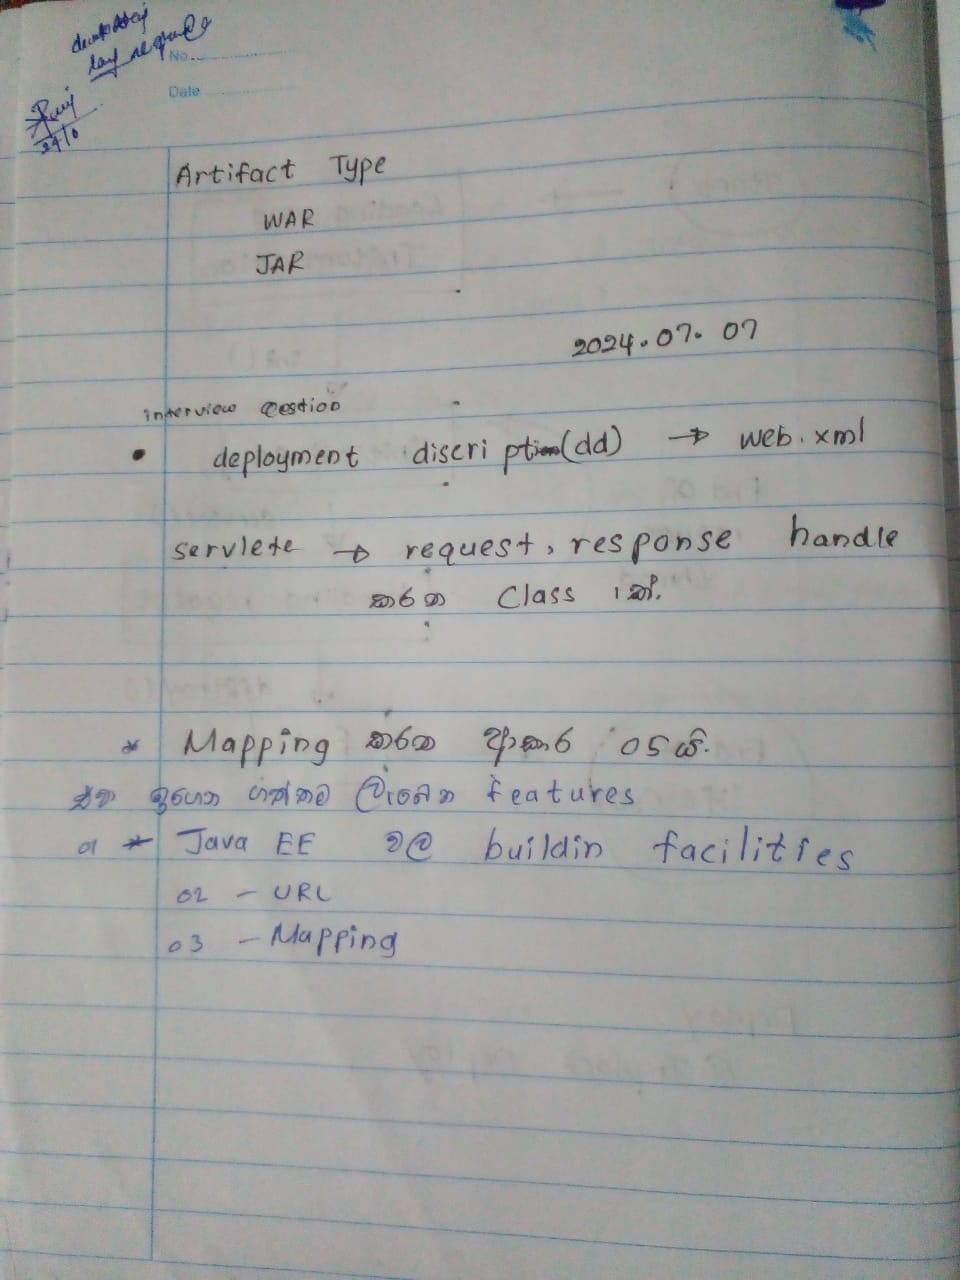 No.
Date
Artifact Type
WAR
JAR
2024.07.07
interview Qestion
• deployment discription(dd) → web.xml
servlete → request, response handle
කරන Class 1ක්.
* Mapping කරන ආකාර 05යි.
ඉගෙන ගත්තම ලැබෙන features
01 * Java EE වල buildin facilities
02 - URL
03 - Mapping